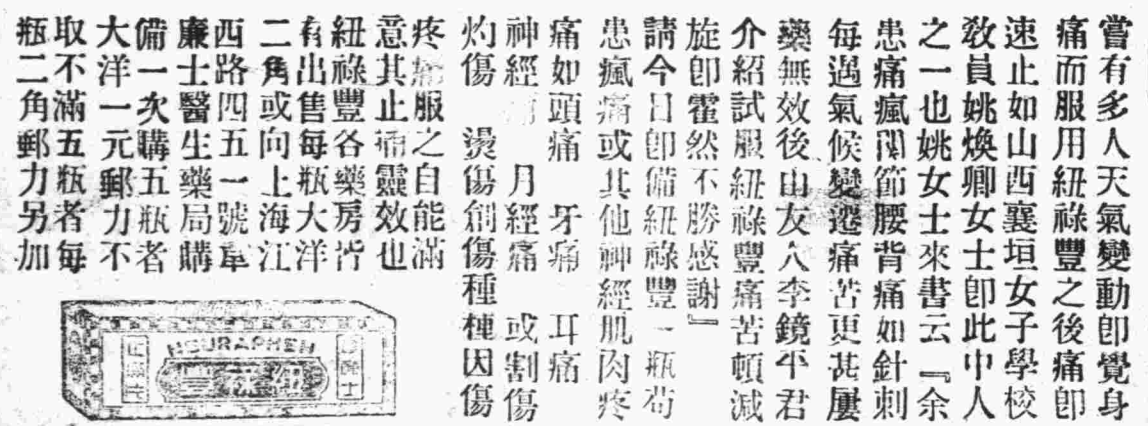 嘗有多人天氣變動卽覺身
痛而服用紐祿豐之後痛卽
速止如山西襄垣女子學校
敎員姚煥卿女士卽此中人
之一也姚女士來書云『余
患痛瘋關節腰背痛如針刺
每遇氣候變遷痛苦更甚屢
藥無效後由友人李鏡平君
介紹試服紐祿豐痛苦頓減
旋卽霍然不勝感謝』
請今日卽備紐祿豐一瓶苟
患瘋痛或其他神經肌肉疼
痛如頭痛　牙痛　耳痛
神經痛　月經痛　或割傷
灼傷　燙傷創傷種種因傷
疼痛服之自能滿
意其止痛靈效也
紐祿豐各藥房皆
有出售每瓶大洋
二角或向上海江
西路四五一號韋
廉士醫生藥局購
備一次購五瓶者
大洋一元郵力不
取不滿五瓶者每
瓶二角郵力另加
NEURAPHEN
紐祿豐